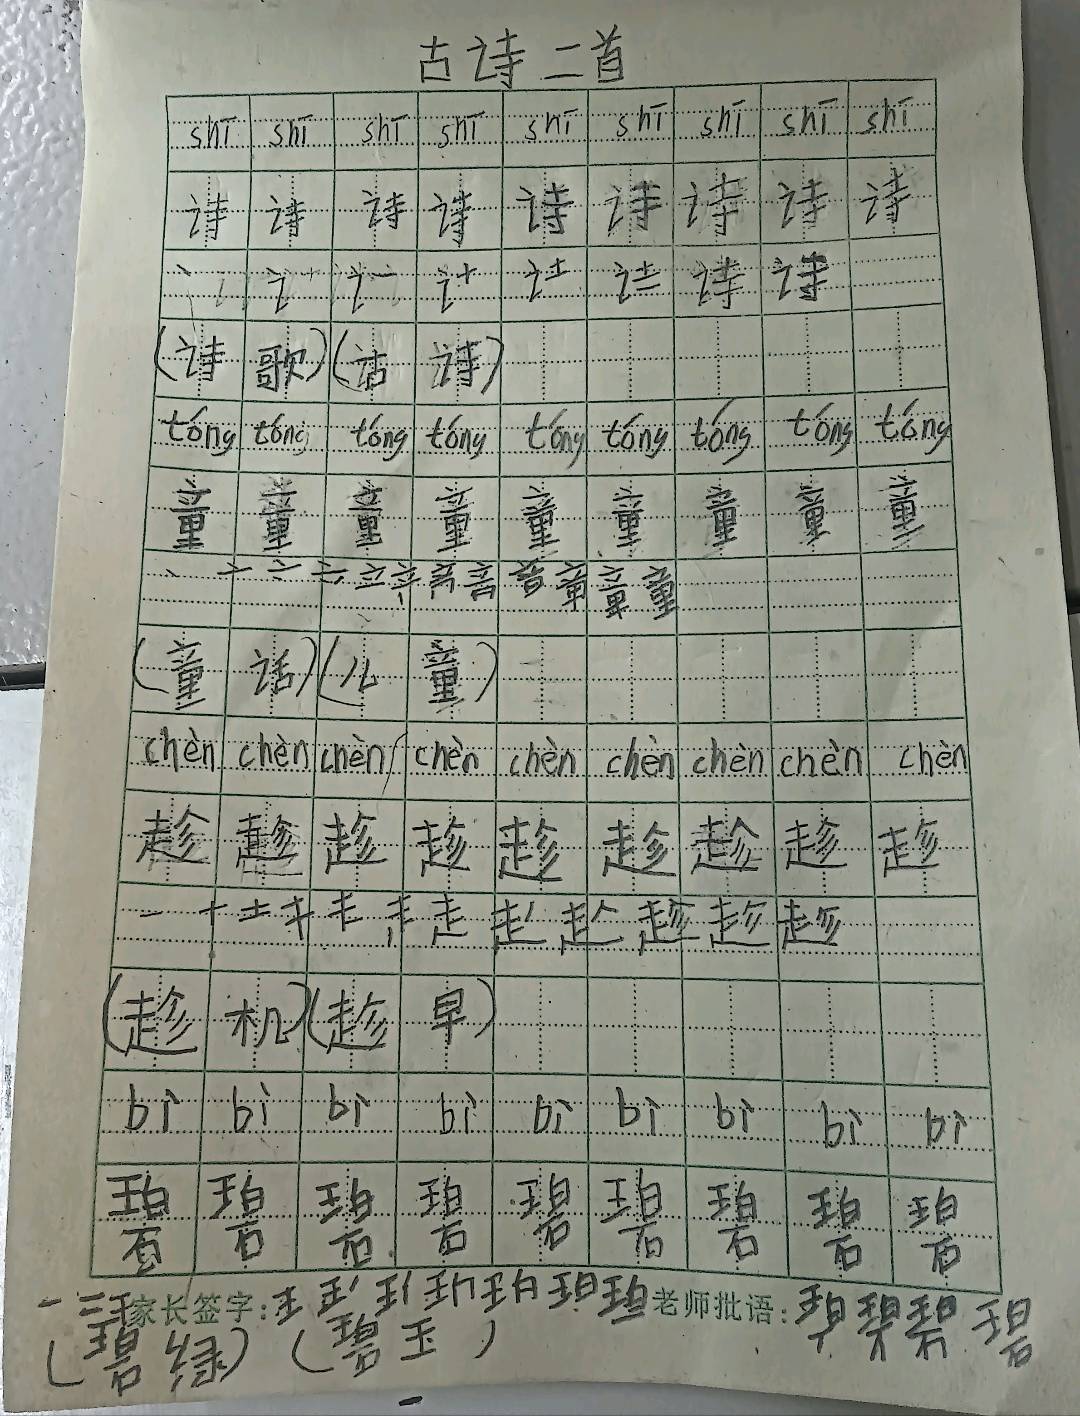 古诗二首
shī shī shī shī shī shī shī shī shī
诗 诗 诗 诗 诗 诗 诗 诗 诗
诗 诗
(诗歌)(诂诗)
tóng tóng tóng tóng tóng tóng tóng tóng tóng
童 童 童 童 童 童 童 童 童
丶 亠 六 立 音 章 童
(童话)(儿童)
chèn chèn chèn chèn chèn chèn chèn chèn chèn
趁 趁 趁 趁 趁 趁 趁 趁 趁
一 十 土 走 趁 趁 趁
(趁机)(趁早)
bì bì bì bì bì bì bì bì bì
碧 碧 碧 碧 碧 碧 碧 碧 碧
一 二 王 家长签字: 王 珀 珀 老师批语: 碧
(碧绿)(碧玉)